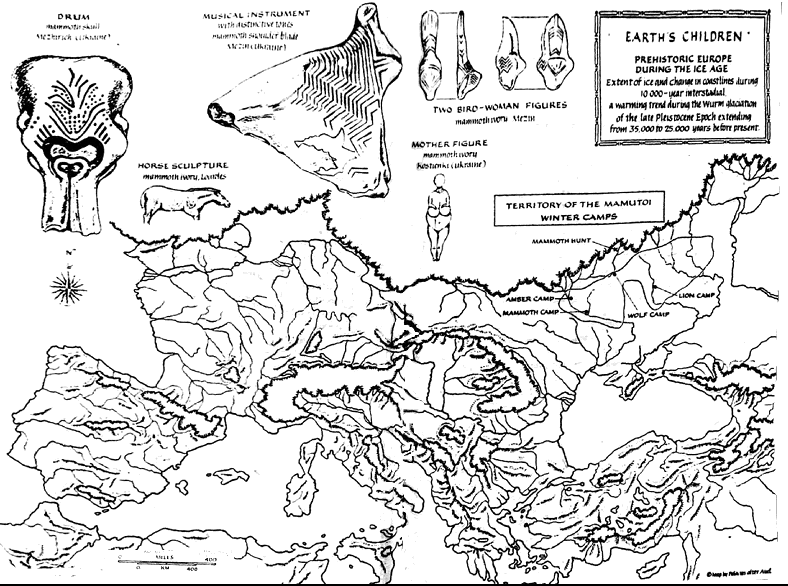 DRUM
mammoth skull
Mezhirich (Ukraine)
MUSICAL INSTRUMENT
with distinctive tones
mammoth shoulder blade
Mezin (Ukraine)
TWO BIRD-WOMAN FIGURES
mammoth ivory Mezin
EARTH'S CHILDREN
PREHISTORIC EUROPE
DURING THE ICE AGE
Extent of ice and change in coastlines during
10 000-year interstadial.
a warming trend during the Würm glaciation
of the late Pleistocene Epoch extending
from 35,000 to 25,000 years before present.
MOTHER FIGURE
mammoth ivory
Kostienki (Ukraine)
HORSE SCULPTURE
mammoth ivory, Lourdes
TERRITORY OF THE MAMUTOI
WINTER CAMPS
N
MAMMOTH HUNT
AMBER CAMP
MAMMOTH CAMP
LION CAMP
WOLF CAMP
0 MILES 400
0 KM 400